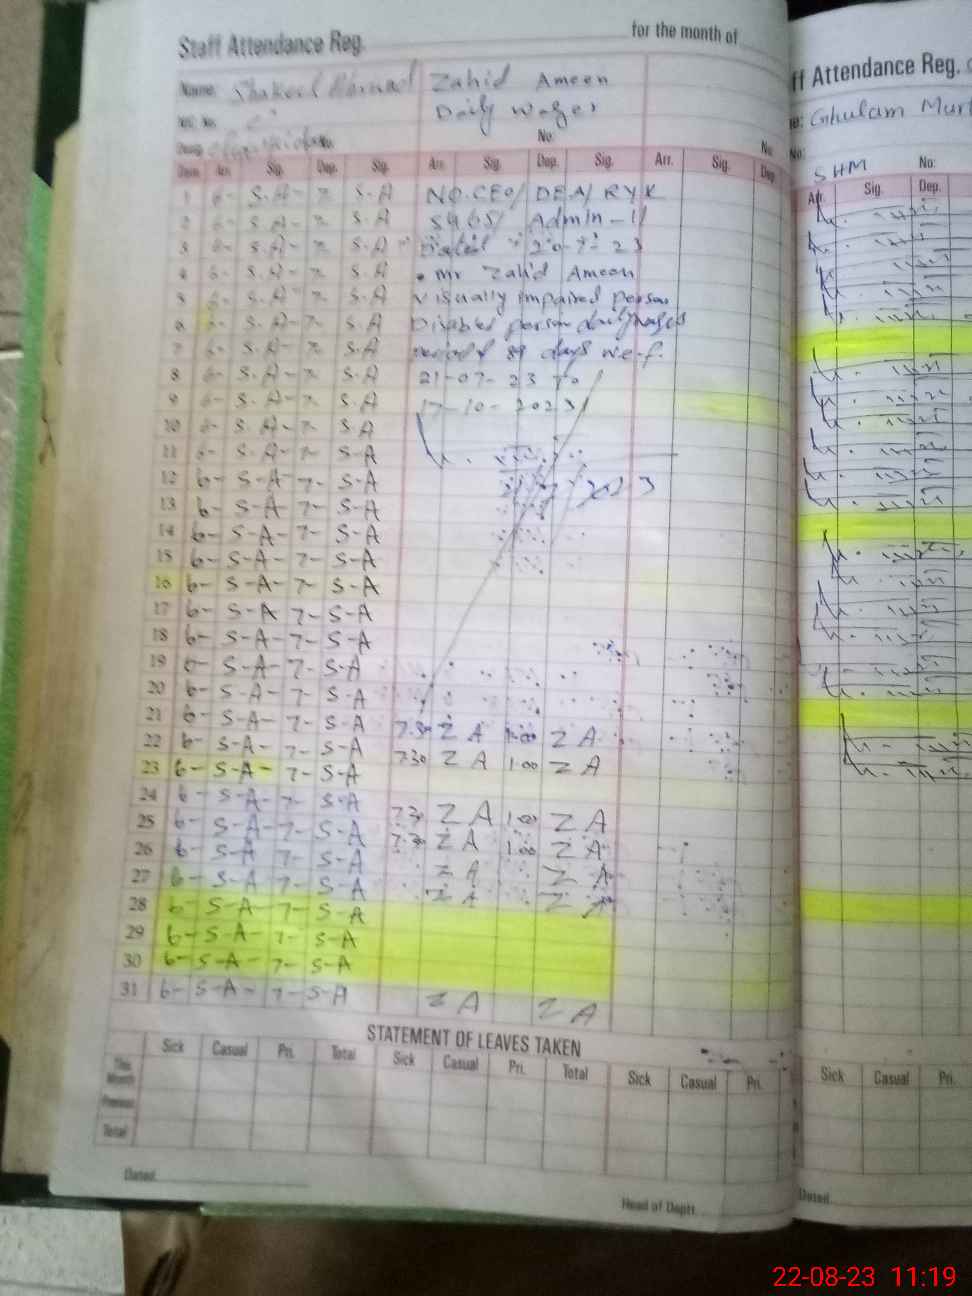 Staff Attendance Reg. for the month of
Name: Shakeel Ahmad Zahid Ameen
Daily Wages
Desig. No. No: No
Date Arr. Sig. Dep. Sig. Arr. Sig. Dep. Sig. Arr. Sig. Dep.
1 6- S-A- 7- S-A NO.CEO/ DEA/ RYK
2 6- S-A- 7- S-A 5465/ Admin-II
3 6- S-A- 7- S-A Dated 20-7-23
4 6- S-A- 7- S-A Mr Zahid Ameen
5 6- S-A- 7- S-A Visually impaired person
6 6- S-A- 7- S-A Disabled person daily wages
7 6- S-A- 7- S-A period of 89 days w.e.f.
8 6- S-A- 7- S-A 21-07-23 To
9 6- S-A- 7- S-A 17-10-2023
10 6- S-A- 7- S-A
11 6- S-A- 7- S-A
12 6- S-A- 7- S-A
13 6- S-A- 7- S-A
14 6- S-A- 7- S-A
15 6- S-A- 7- S-A
16 6- S-A- 7- S-A
17 6- S-A 7- S-A
18 6- S-A- 7- S-A
19 6- S-A- 7- S-A
20 6- S-A- 7- S-A
21 6- S-A- 7- S-A 7.30 Z A 1.00 Z A
22 6- S-A- 7- S-A 7.30 Z A 1.00 Z A
23 6- S-A- 7- S-A
24 6- S-A- 7- S-A 7.30 Z A 1.00 Z A
25 6- S-A- 7- S-A 7.30 Z A 1.00 Z A
26 6- S-A 7- S-A Z A Z A
27 6- S-A- 7- S-A Z A Z A
28 6- S-A- 7- S-A
29 6- S-A- 7- S-A
30 6- S-A- 7- S-A
31 6- S-A- 7- S-A Z A Z A
STATEMENT OF LEAVES TAKEN
Sick Casual Pri. Total Sick Casual Pri. Total Sick Casual Pri.
This Month
Previous
Total
Dated
Head of Deptt.
ff Attendance Reg.
Ghulam
No: No:
SHM
Arr. Sig. Dep.
Sick Casual Pri.
Dated
22-08-23 11:19